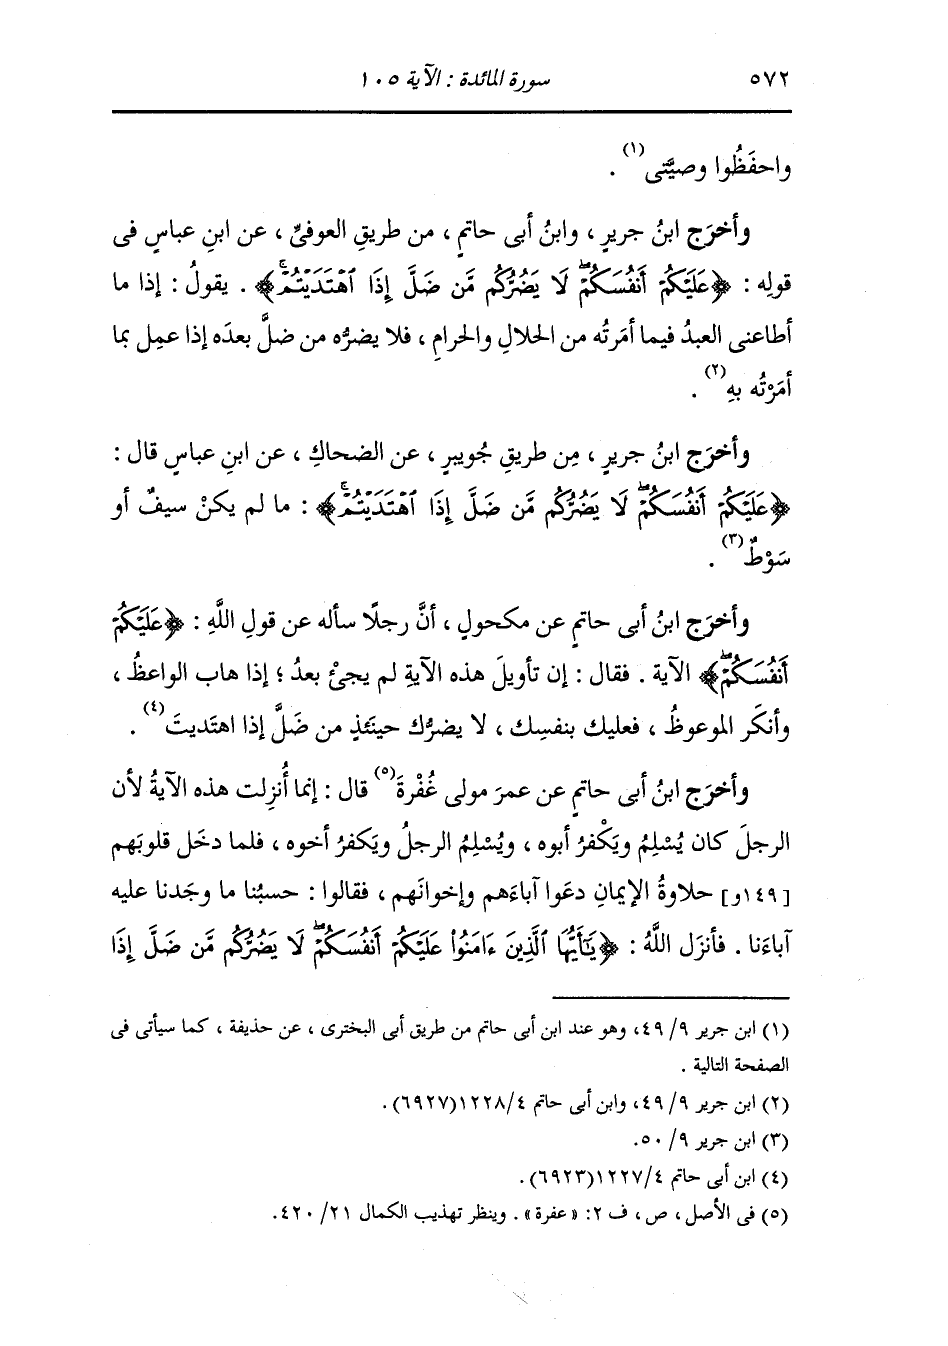 ٥٧٢ سورة المائدة : الآية ١٠٥
واحفَظُوا وصيَّتى(١) .
وأخرَج ابنُ جريرٍ ، وابنُ أبى حاتمٍ ، من طريقِ العوفىِّ ، عن ابنِ عباسٍ فى
قولِه : ﴿عَلَيْكُمْ أَنفُسَكُمْۖ لَا يَضُرُّكُم مَّن ضَلَّ إِذَا ٱهْتَدَيْتُمْۚ﴾ . يقولُ : إذا ما
أطاعنى العبدُ فيما أمَرتُه من الحلالِ والحرامِ ، فلا يضرُّه من ضلَّ بعدَه إذا عمِل بما
أمَرْتُه بهِ(٢) .
وأخرَج ابنُ جريرٍ ، مِن طريقِ جُويبرٍ ، عن الضحاكِ ، عن ابنِ عباسٍ قال :
﴿عَلَيْكُمْ أَنفُسَكُمْۖ لَا يَضُرُّكُم مَّن ضَلَّ إِذَا ٱهْتَدَيْتُمْۚ﴾ : ما لم يكنْ سيفٌ أو
سَوْطٌ(٣) .
وأخرَج ابنُ أبى حاتمٍ عن مكحولٍ ، أنَّ رجلًا سأله عن قولِ اللَّهِ : ﴿عَلَيْكُمْ
أَنفُسَكُمْۖ﴾ الآية . فقال : إن تأويلَ هذه الآيةِ لم يجئْ بعدُ ؛ إذا هاب الواعظُ ،
وأنكَر الموعوظُ ، فعليك بنفسِك ، لا يضرُّك حينَئذٍ من ضَلَّ إذا اهتَديتَ(٤) .
وأخرَج ابنُ أبى حاتمٍ عن عمرَ مولى غُفْرةَ(٥) قال : إنما أُنزِلت هذه الآيةُ لأن
الرجلَ كان يُسْلِمُ ويَكْفرُ أبوه ، ويُسْلِمُ الرجلُ ويَكفرُ أخوه ، فلما دخَل قلوبَهم
[١٤٩و] حلاوةُ الإيمانِ دعَوا آباءَهم وإخوانَهم ، فقالوا : حسبُنا ما وجَدنا عليه
آباءَنا . فأنزَل اللَّهُ : ﴿يَٰٓأَيُّهَا ٱلَّذِينَ ءَامَنُوا۟ عَلَيْكُمْ أَنفُسَكُمْۖ لَا يَضُرُّكُم مَّن ضَلَّ إِذَا
(١) ابن جرير ٩/ ٤٩، وهو عند ابن أبى حاتم من طريق أبى البخترى ، عن حذيفة ، كما سيأتى فى
الصفحة التالية .
(٢) ابن جرير ٩/ ٤٩، وابن أبى حاتم ٤/ ١٢٢٨(٦٩٢٧).
(٣) ابن جرير ٩/ ٥٠.
(٤) ابن أبى حاتم ٤/ ١٢٢٧(٦٩٢٣).
(٥) فى الأصل ، ص ، ف ٢: « عفرة » . وينظر تهذيب الكمال ٢١/ ٤٢٠.